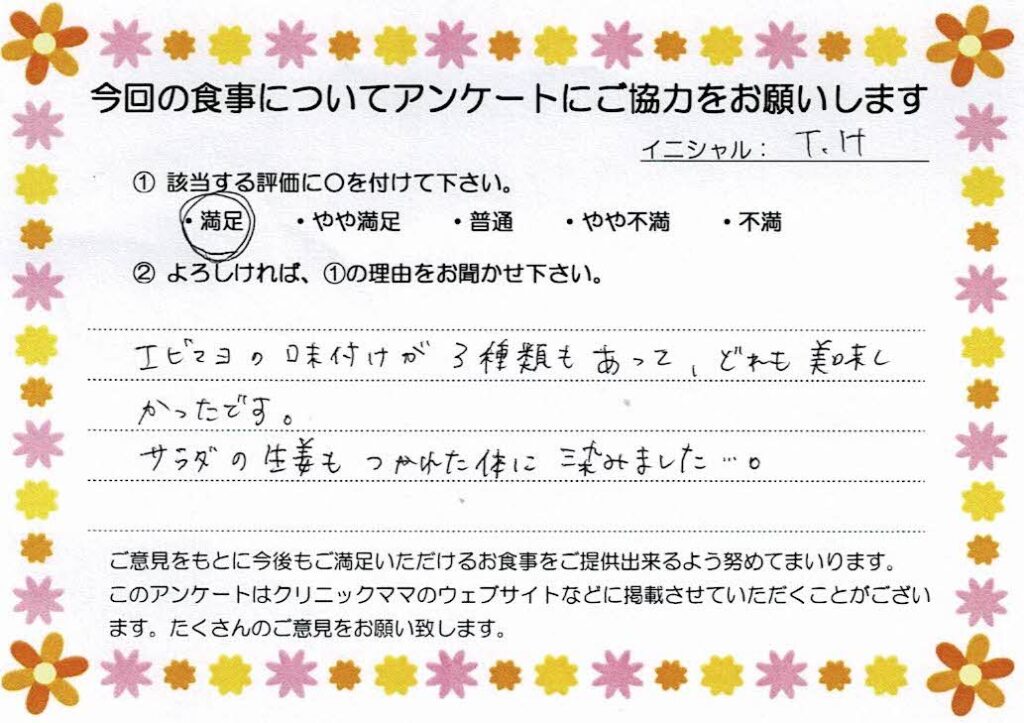 今回の食事についてアンケートにご協力をお願いします
イニシャル： T.H
① 該当する評価に〇を付けて下さい。
・満足 ・やや満足 ・普通 ・やや不満 ・不満
② よろしければ、①の理由をお聞かせ下さい。
エビマヨの味付けが3種類もあって、どれも美味し
かったです。
サラダの生姜もつかれた体に染みました…。
ご意見をもとに今後もご満足いただけるお食事をご提供出来るよう努めてまいります。
このアンケートはクリニックママのウェブサイトなどに掲載させていただくことがござい
ます。たくさんのご意見をお願い致します。